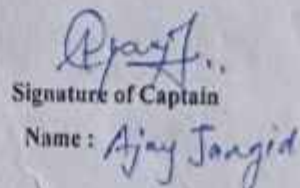 Ajay J..
Signature of Captain
Name : Ajay Jangid